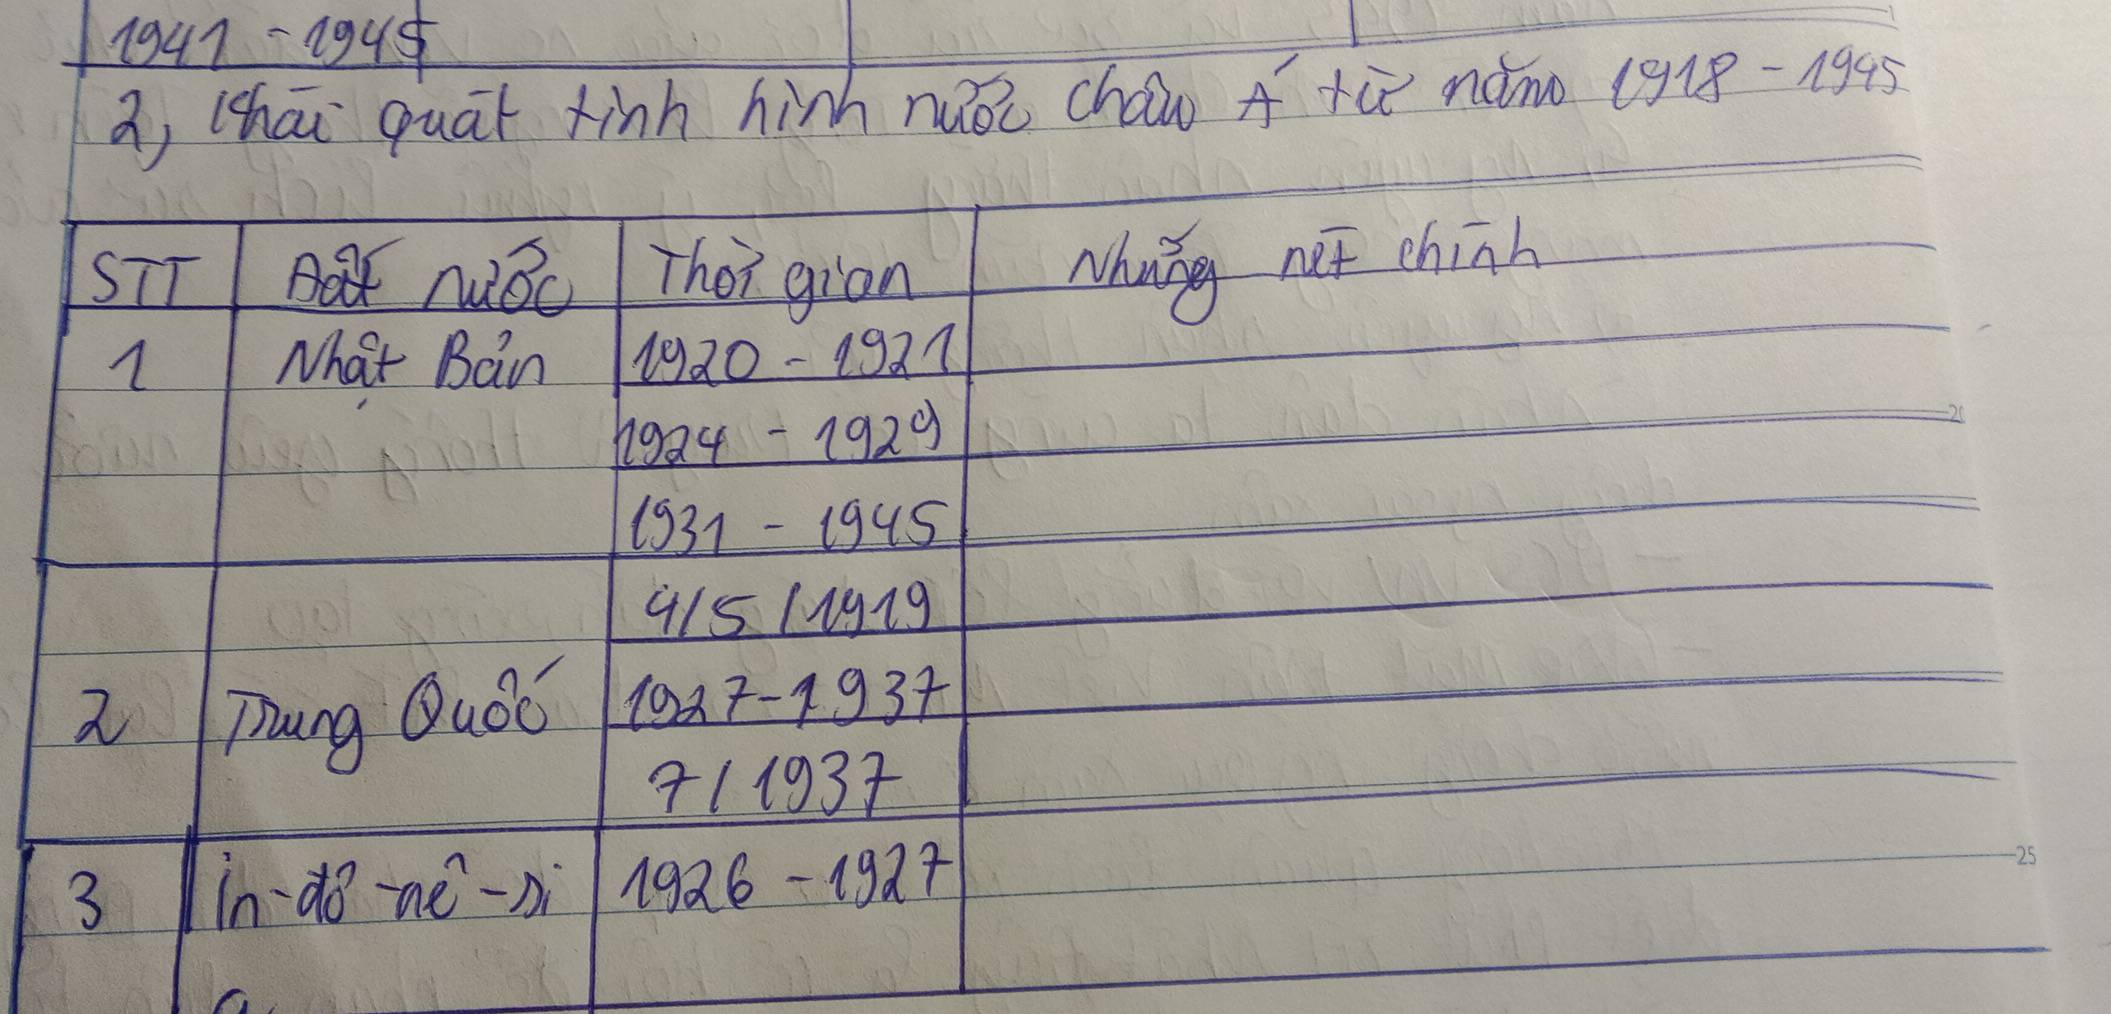 1941 - 1945
2, Khái quát tình hình nước châu Á từ năm 1918 - 1945
STT Đất nước Thời gian Những nét chính
1 Nhật Bản 1920 - 1921
1924 - 1929
1931 - 1945
4/5/1919
2 Trung Quốc 1927-1937
7/1937
3 in-đô-nê-si 1926 - 1927
a
20
25